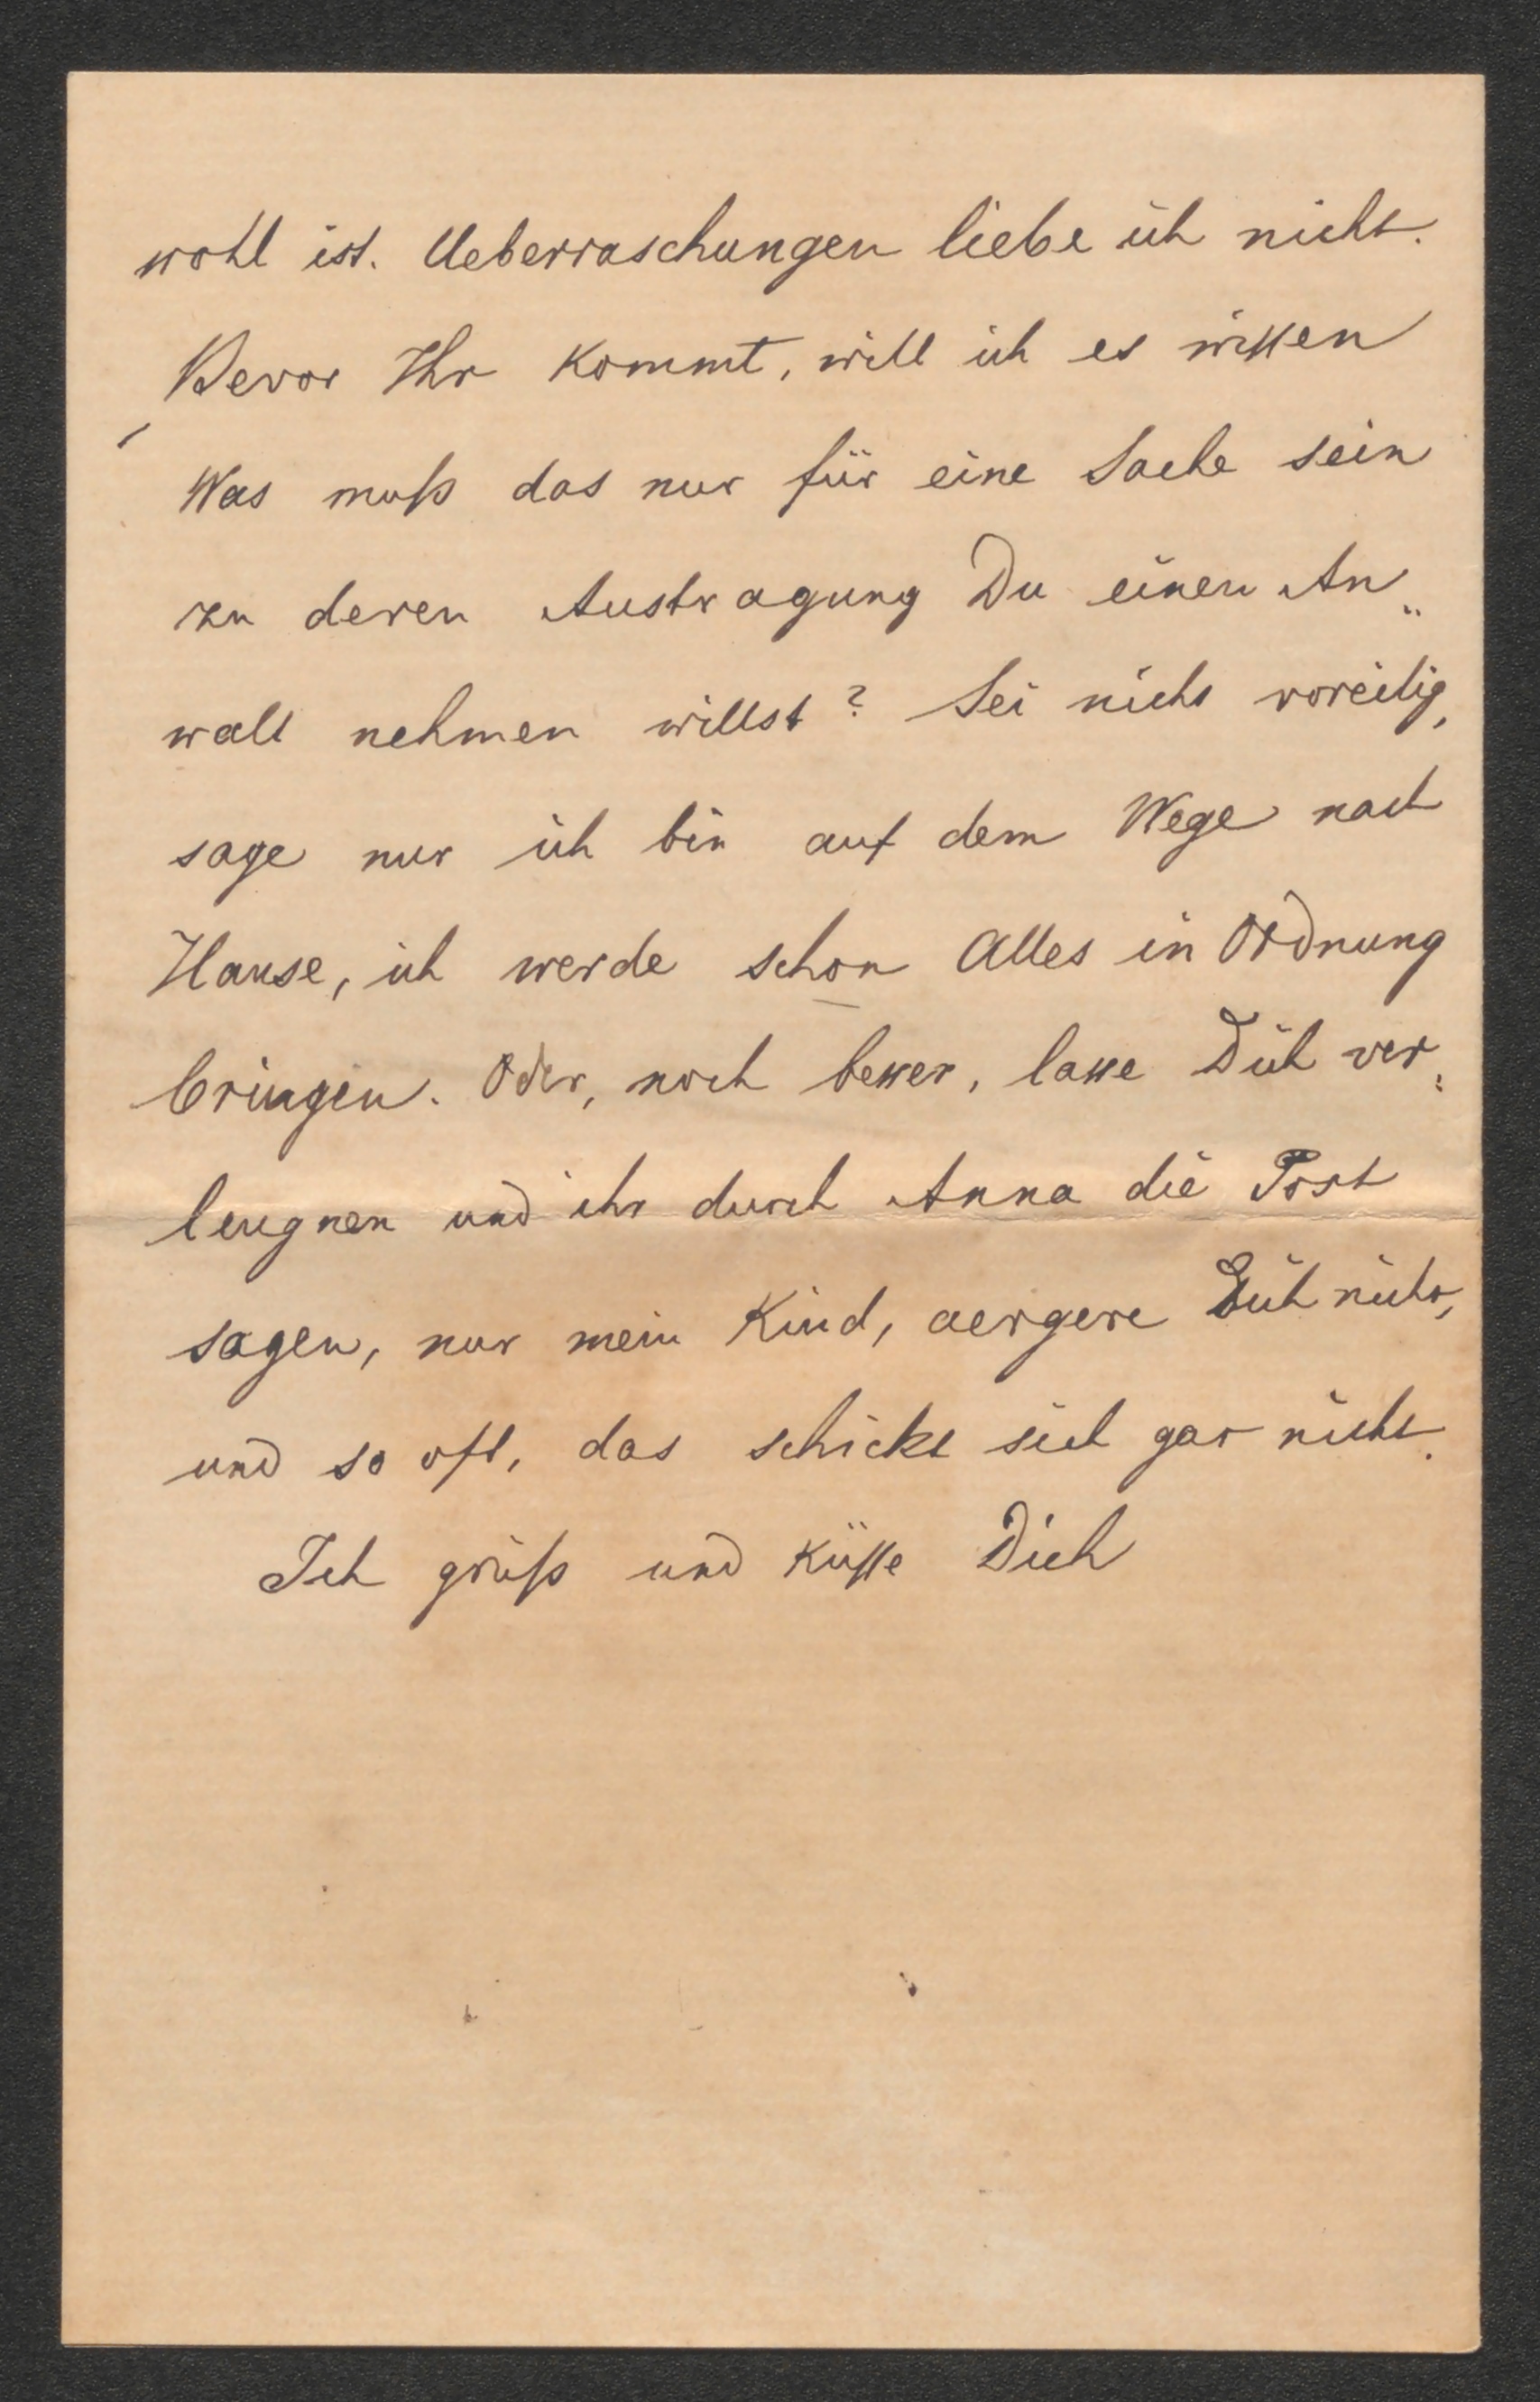 wohl ist. Ueberraschungen liebe ich nicht.
Bevor Ihr kommt, will ich es wissen
Was muß das nur für eine Sache sein
zu deren Austragung Du einen An„
walt nehmen willst? Sei nicht voreilig,
sage nur ich bin auf dem Wege nach
Hause, ich werde schon Alles in Ordnung
bringen. Oder, noch besser, lasse Dich ver„
leugnen und ihr durch Anna die Post
sagen, nur mein Kind, aergere Dich nicht,
und so oft, das schickt sich gar nicht.
Ich grüß und küsse Dich